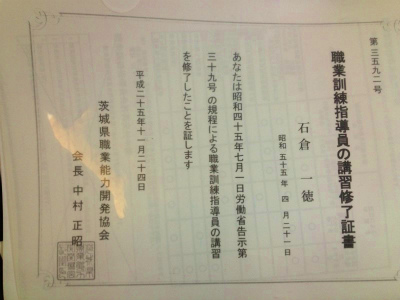 第三五九二号
職業訓練指導員の講習修了証書
石倉 一徳
昭和五十五年 四月二十一日
あなたは昭和四十五年七月一日労働省告示第
三十九号の規程による職業訓練指導員の講習
を修了したことを証します
平成二十五年十一月二十四日
茨城県職業能力開発協会
会長 中村 正昭